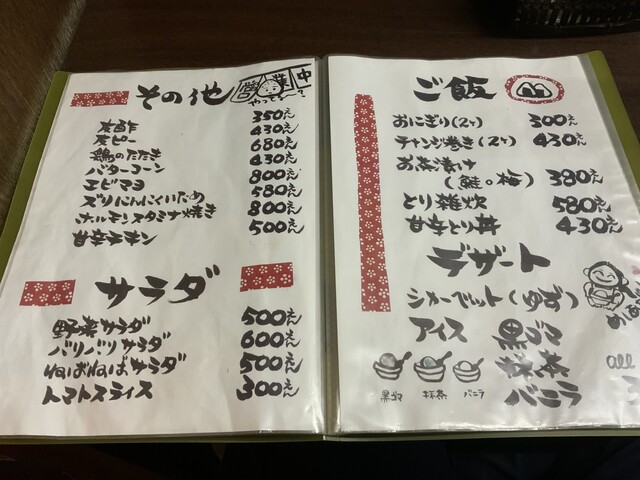 その他
営業中
やってるよ～!
皮酢 350えん
皮ピー 430えん
鶏のたたき 680えん
バターコーン 430えん
エビマヨ 800えん
ズリにんにくいため 580えん
ホルモンスタミナ焼き 800えん
甘辛チキン 500えん
サラダ
野菜サラダ 500えん
バリバリサラダ 600えん
ねばねばサラダ 500えん
トマトスライス 300えん
ご飯
おにぎり(2ヶ) 300えん
チャンジャ巻き(2ヶ) 430えん
お茶漬け
(鮭。梅) 380えん
とり雑炊 580えん
甘辛とり丼 430えん
デザート
シャーベット(ゆず)
アイス 黒ゴマ
抹茶
バニラ
all
黒ゴマ 抹茶 バニラ